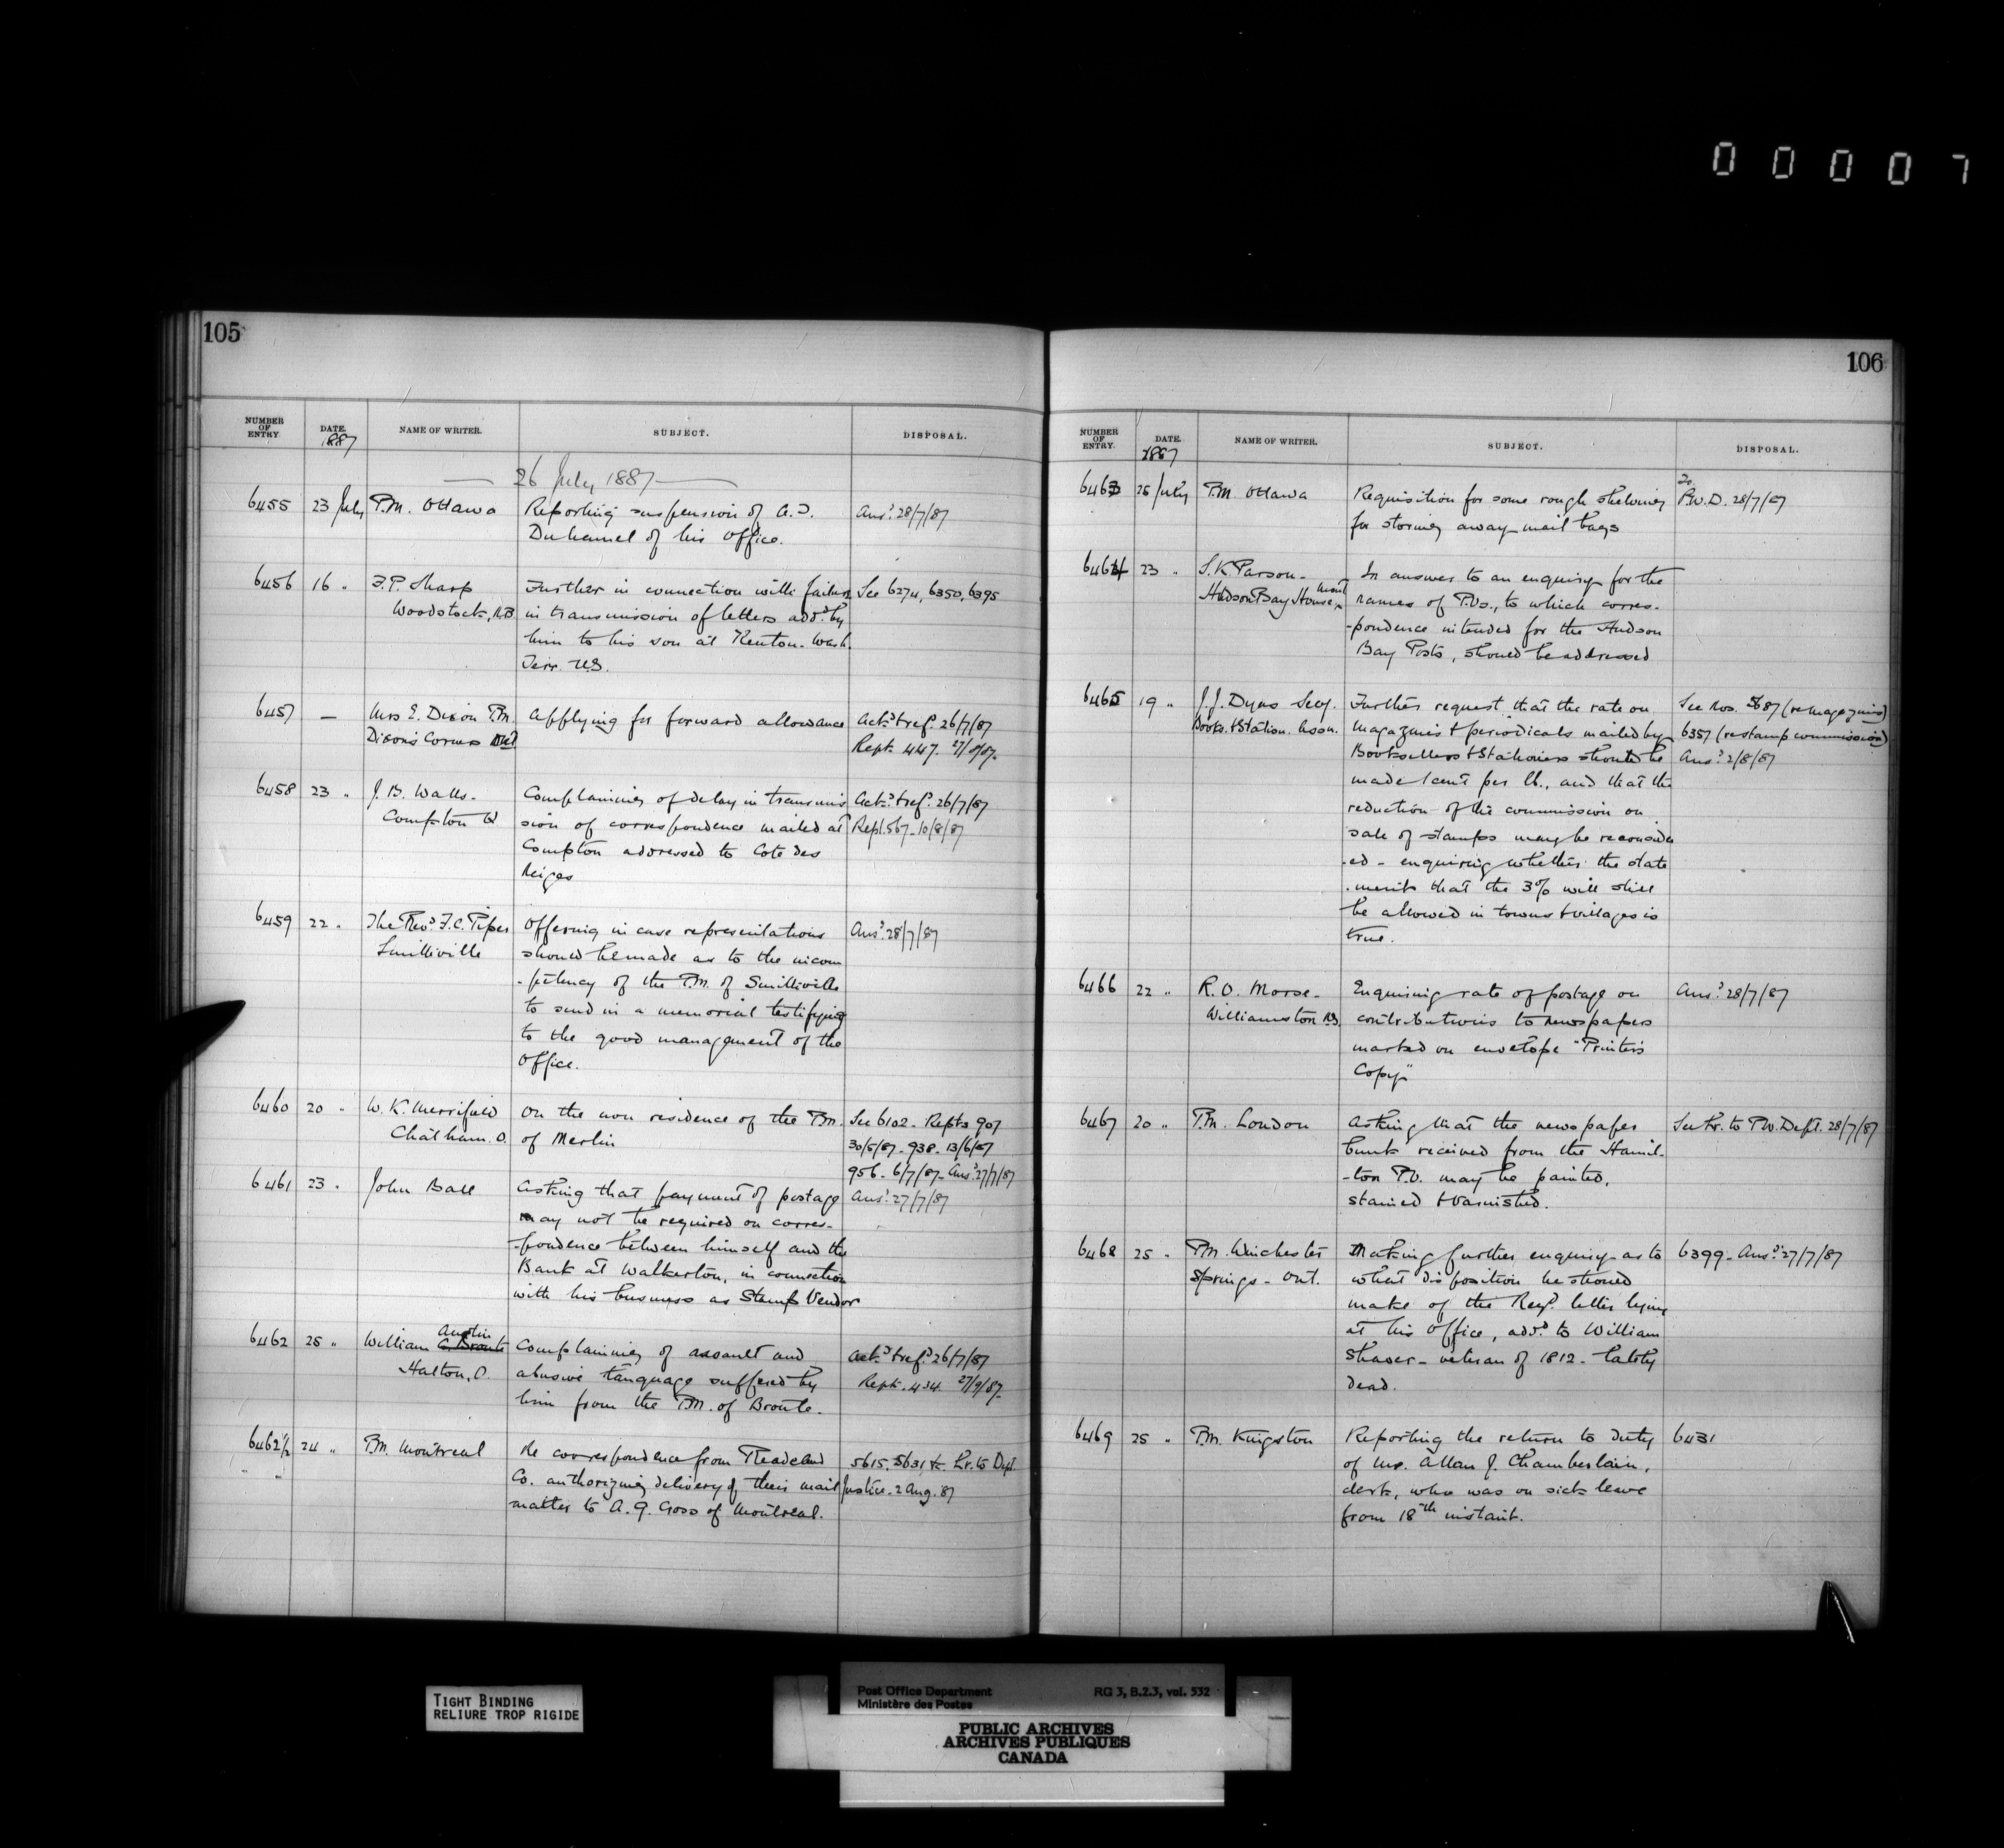 00007
105
NUMBER OF ENTRY. DATE. NAME OF WRITER. SUBJECT. DISPOSAL.
1887
26 July 1887
6455 23 July P.M. Ottawa Reporting suspension of A. Ansd 28/7/87
Duhamel of his Office.
6456 16 " F.P. Sharp Further in connection with failure See 6274, 6350, 6395
Woodstock, N.B in transmission of letters addd by
him to his son at Kenton. Wash.
Terr. U.S.
6457 — Mrs E. Dixon P.M. Applying for forward allowance Ackd & refd 26/7/87
Dixons Corners Ont Rept. 447. 27/8/87.
6458 23 " J. B. Walls. Complaining of delay in transmis Ackd & refd 26/7/87
Compton Q sion of correspondence mailed at Rept. 567. 10/8/87
Compton addressed to Cote des
Neiges
6459 22 " The Revd F.C. Piper Offering in case representations Ansd 28/7/87
Smithville should be made as to the incom
-petency of the P.M. of Smithville
to send in a memorial testifying
to the good management of the
Office.
6460 20 " W. K. Merrifield On the non residence of the P.M. See 6102. Repts 907
Chatham. O. of Merlin 30/5/87. 938. 13/6/87
956. 6/7/87. Ansd 27/7/87
6461 23 " John Ball Asking that payment of postage Ansd 27/7/87
may not be required on corres-
-pondence between himself and the
Bank at Walkerton, in connection
with his business as Stamp Vendor
Austin
6462 25 " William Complaining of assault and Ackd & refd 26/7/87
Halton, O. abusive language suffered by Rept. 434. 27/9/87.
him from the P.M. of Bronte.
6462½ 24 " P.M. Montreal Re correspondence from
5615, 5631, &c. Lr. to Dept.
Co. authorizing delivery of their mail Justice. 2 Aug. 87
matter to A. G. Goss of Montreal.
106
NUMBER OF ENTRY. DATE. NAME OF WRITER. SUBJECT. DISPOSAL.
1887
6463 25 July P.M. Ottawa Requisition for some rough shelving P.W.D. 28/7/87
for storing away mail bags
6464 23 " S. K. Parson. In answer to an enquiry for the
Hudson Bay House, Montl names of P.Os., to which corres-
-pondence intended for the Hudson
Bay Posts, should be addressed
6465 19 " J. J. Dyas Secy. Further request that the rate on See Nos. 5687 (re magazines)
Books. & Station. Assn. magazines & periodicals mailed by 6357 (re stamp commission)
Booksellers & Stationers should be Ansd 2/8/87
made 1 cent per lb., and that the
reduction of the commission on
sale of stamps may be reconsider
-ed - enquiring whether the state
-ment that the 3% will still
be allowed in towns & villages is
true.
6466 22 " R. O. Morse. Enquiring rate of postage on Ansd 28/7/87
Williamston N.S. contributions to newspapers
marked on envelope "Printer's
Copy"
6467 20 " P.M. London Asking that the newspaper See Lr. to P.W. Dept. 28/7/87
bunk received from the Hamil-
-ton P.O. may be painted,
stained & varnished.
6468 25 " P.M. Winchester Making further enquiry as to 6399. Ansd 27/7/87
Springs - Ont. what disposition he should
make of the Regd letter lying
at his Office, addd to William
Shaver - veteran of 1812. lately
dead.
6469 25 " P.M. Kingston Reporting the return to duty 6431
of Mr. Allan J. Chamberlain,
clerk, who was on sick leave
from 18th instant.
TIGHT BINDING
RELIURE TROP RIGIDE
Post Office Department RG 3, B.2.3, vol. 532
Ministère des Postes
PUBLIC ARCHIVES
ARCHIVES PUBLIQUES
CANADA